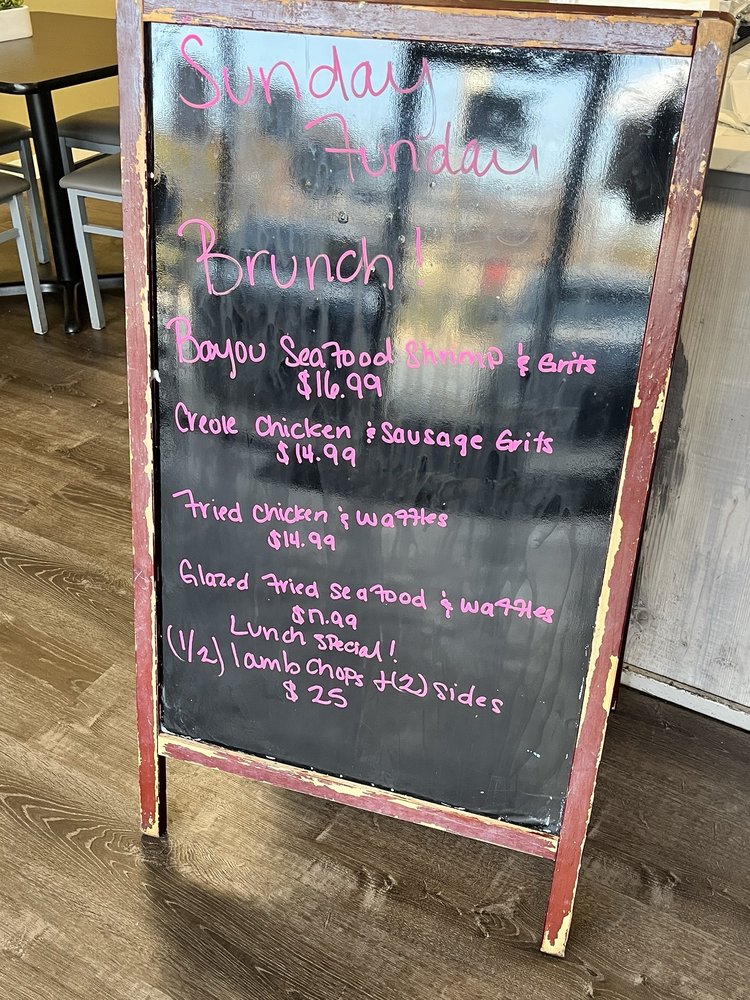 Sunday
Funday
Brunch!
Bayou Seafood Shrimp & Grits
$16.99
Creole Chicken & Sausage Grits
$14.99
Fried Chicken & Waffles
$14.99
Glazed Fried Seafood & Waffles
$17.99
Lunch Special!
(1/2) lamb Chops +(2) Sides
$25